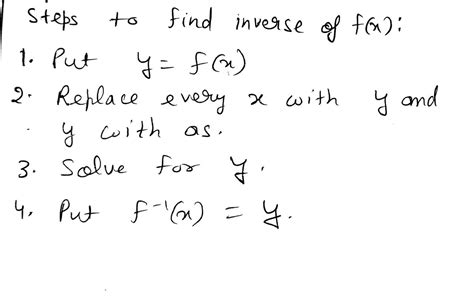 Steps to find inverse of f(x):
1. Put y = f(x)
2. Replace every x with y and
y with as.
3. Solve for y.
4. Put f⁻¹(x) = y.